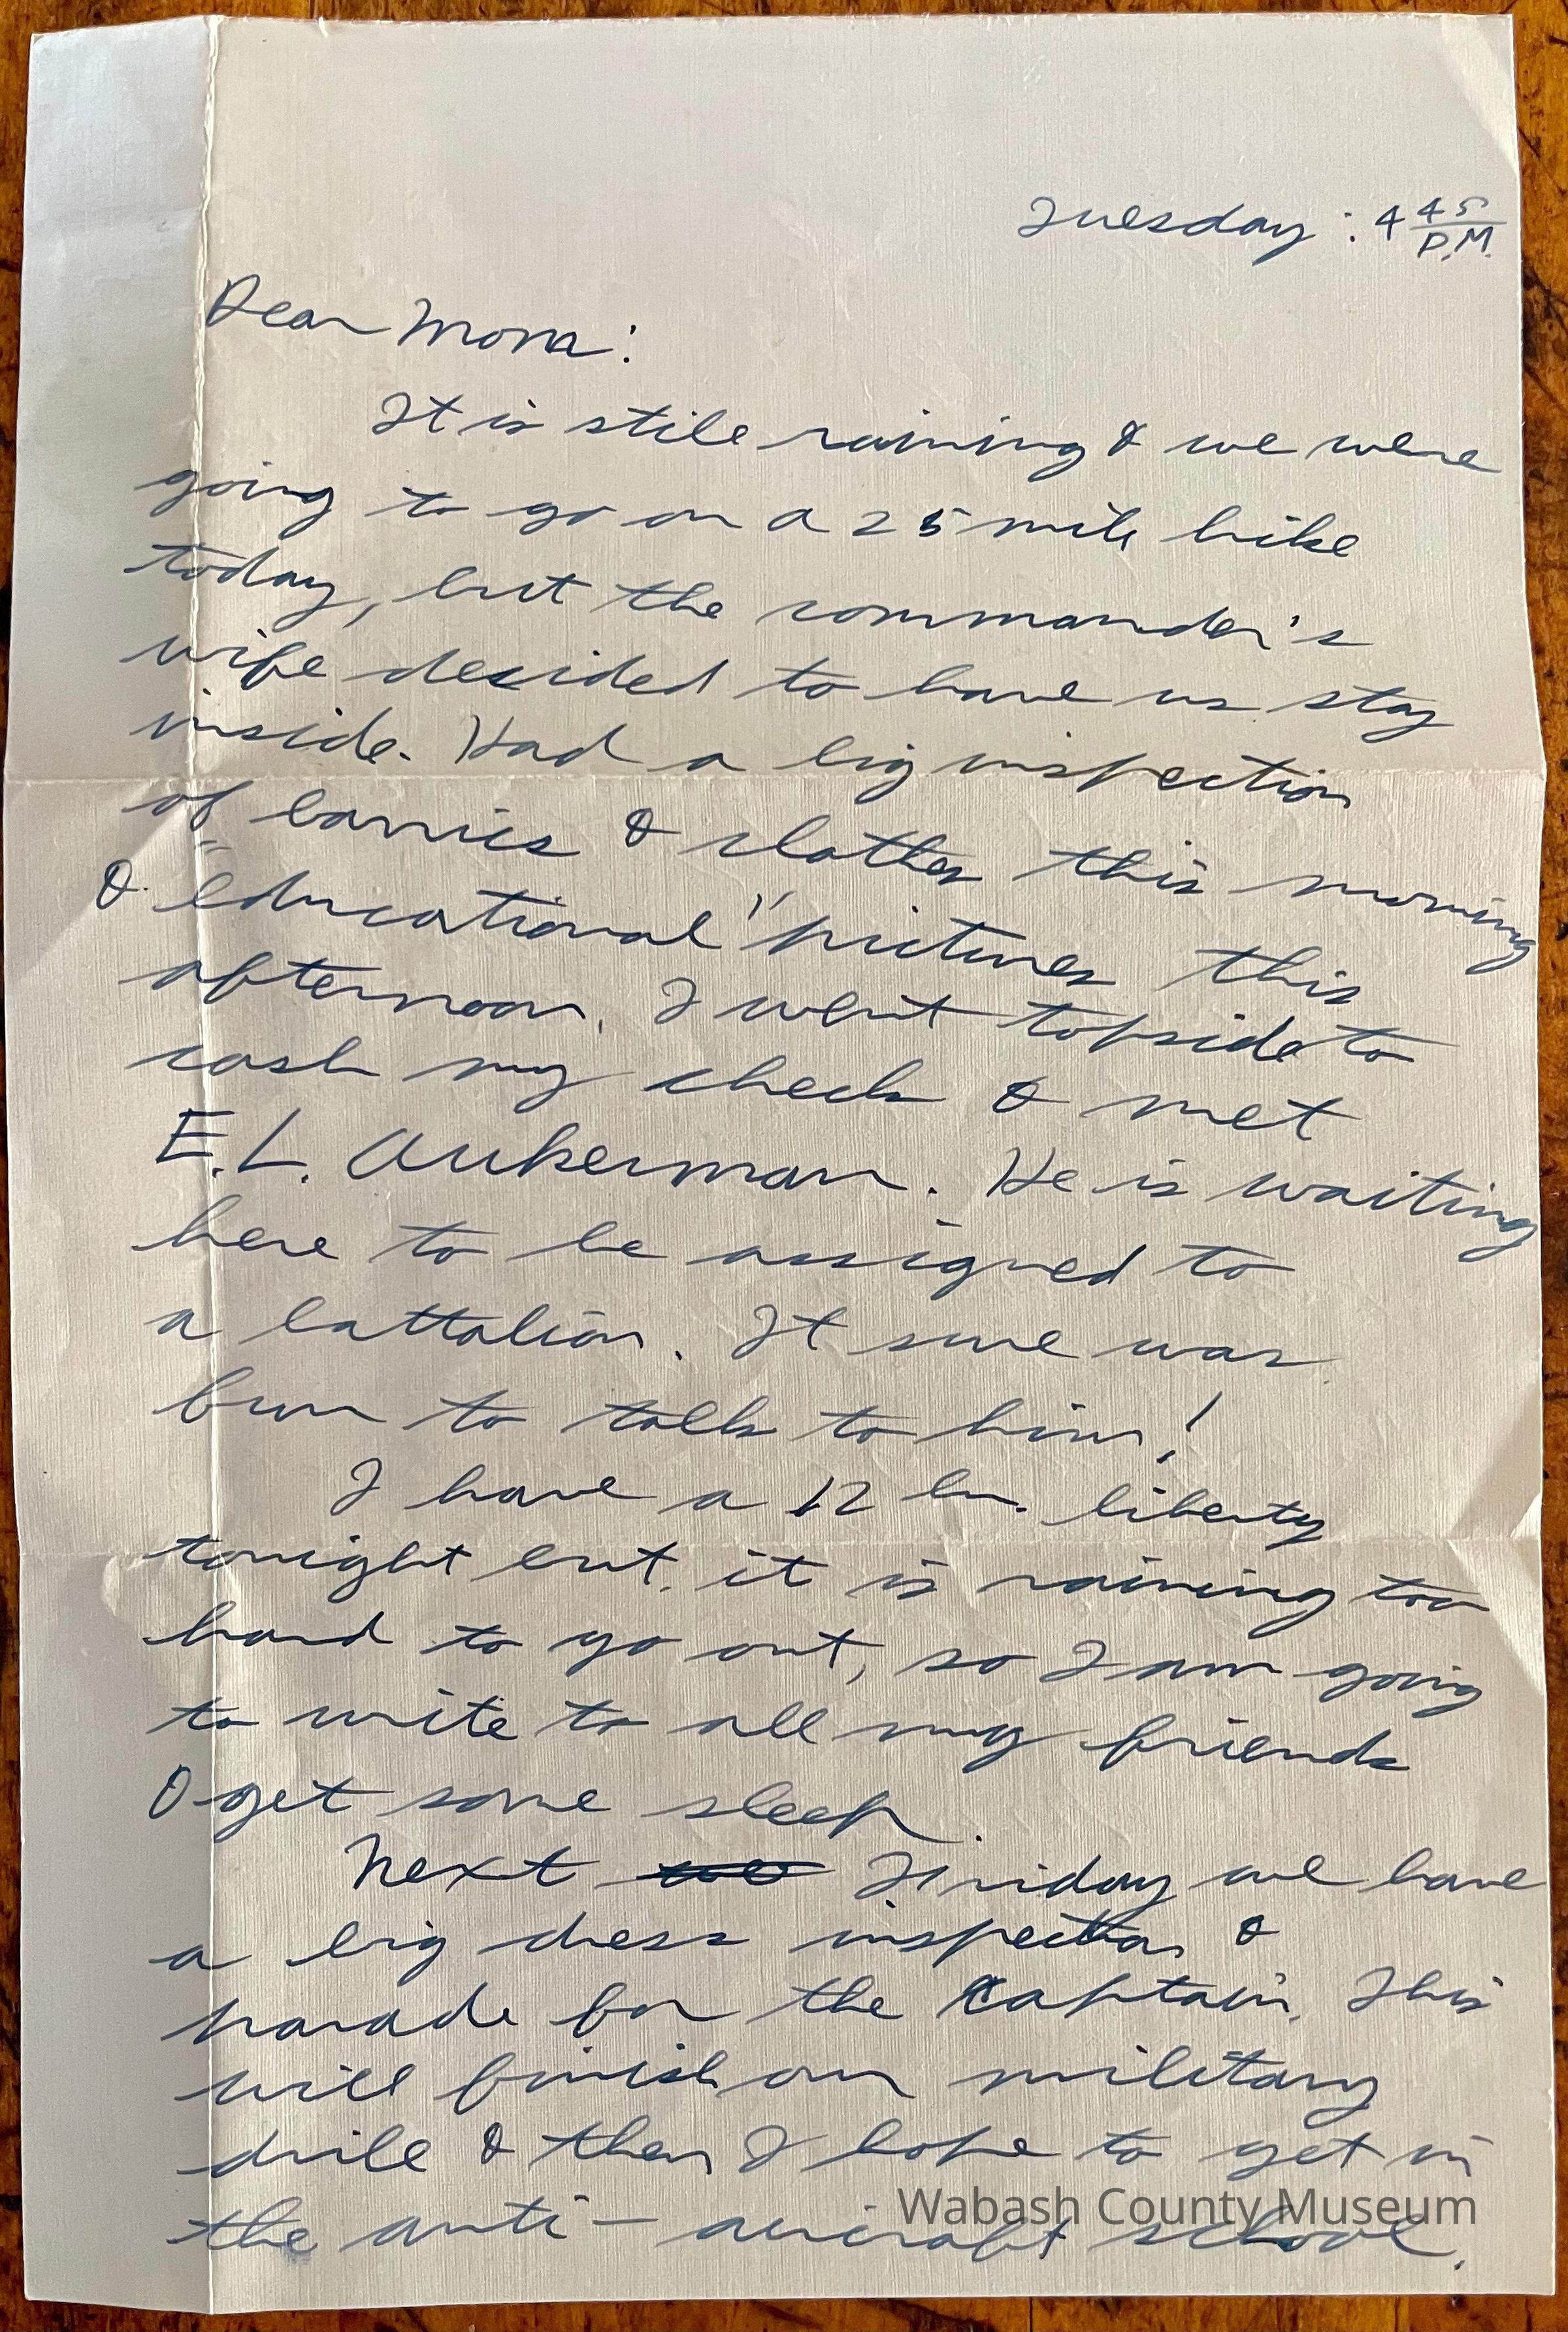 Tuesday: 4 45
P.M.
Dear Mom:
It is still raining & we were
going to go on a 25 mile hike
today, but the commander's
wife decided to have us stay
inside. Had a big inspection
of barrics & clothes this morning
& "educational" pictures this
afternoon. I went topside to
cash my check & met
E.L. Aukerman. He is waiting
here to be assigned to
a battalion. It sure was
fun to talk to him!
I have a 12 hr. liberty
tonight but it is raining too
hard to go out, so I am going
to write to all my friends
& get some sleep.
Next Friday we have
a big dress inspection &
parade for the Captain. This
will finish our military
drill & then I hope to get in
the anti-aircraft school.
Wabash County Museum